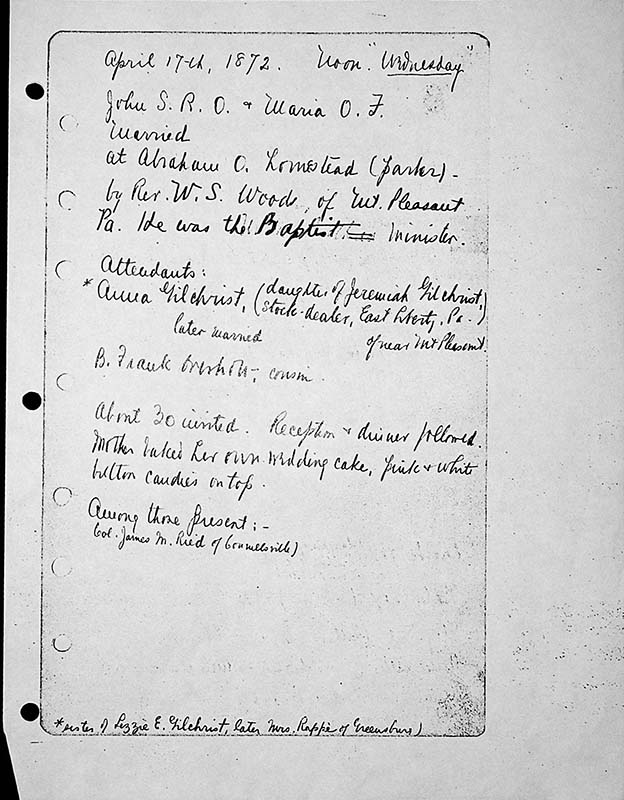 April 17th, 1872. Noon "Wednesday"
John S. R. O. & Maria O. F.
Married
at Abraham O. homestead (parlor) -
by Rev. W. S. Woods, of Mt. Pleasant
Pa. He was the Baptist minister.
Attendants:
* Anna Gilchrist, (daughter of Jeremiah Gilchrist,
stock-dealer, East Liberty, Pa.)
later married of near Mt Pleasant
B. Frank Overholt, cousin.
About 30 invited. Reception & dinner followed.
Mother baked her own wedding cake, pink & white
button candies on top.
Among those present:-
Col. James M. Reid of Connellsville)
* sister of Lizzie E. Gilchrist, later Mrs. Rappe of Greensburg)